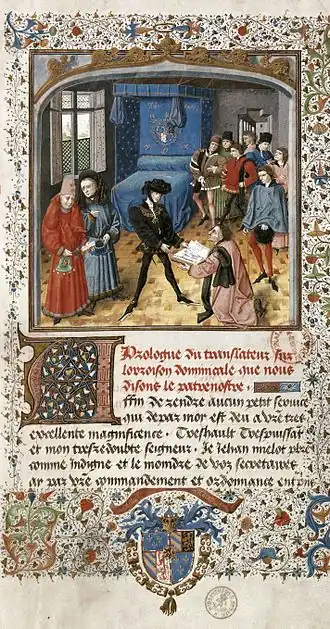 Prologue du translateur sur
lorroison dominicale que nous
disons le patrenostre.
Affin de rendre aucun petit service
qui de par moy est deu a vre tres
excellente magnificence. Treshault Trespuissāt
et mon tresredoubte seigneur. Je Jehan mielot pbre
comme indigne et le moindre de voz secretaires
ay par vre commandement et ordonnance